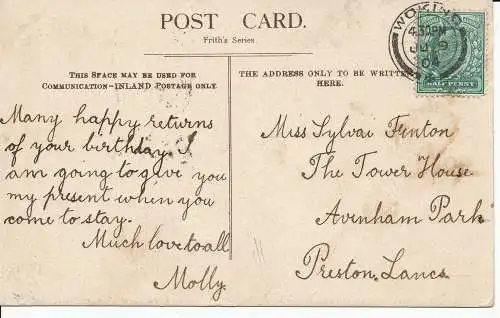 POST CARD.
Frith's Series.
THIS SPACE MAY BE USED FOR
COMMUNICATION-INLAND POSTAGE ONLY.
THE ADDRESS ONLY TO BE WRITTEN
HERE.
WOKING
4.30PM
04
HALFPENNY
Many happy returns
of your birthday. I
am going to give you
my present when you
come to stay.
Much love to all
Molly.
Miss Sylvai Fenton
The Tower House
Avenham Park
Preston, Lancs